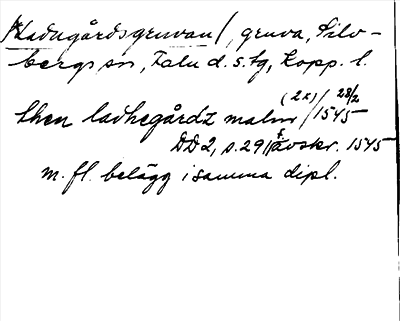 /*Ladugårdsgruvan/, gruva, Silv-
bergs sn, Falu d. s. tg, Kopp. l.
then ladhegårdz malm (2x)/ 28/2 1545
DD2, s. 291 f avskr. 1545
m. fl. belägg i samma dipl.